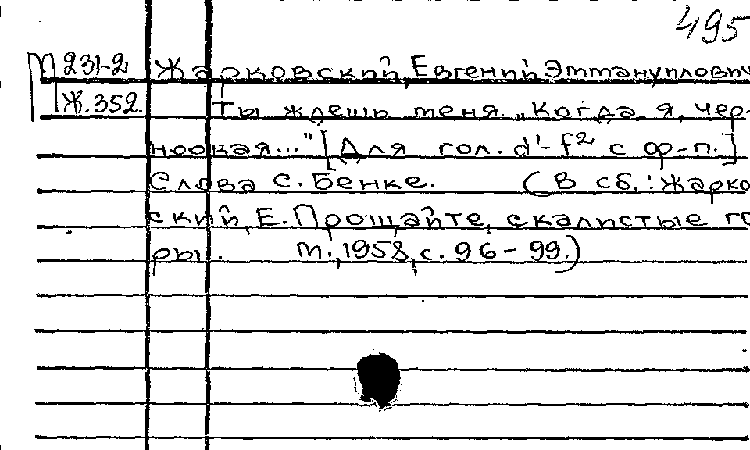 495
М 231-2 Жарковский, Евгений Эммануилович
Ж.352. Ты ждешь меня. „Когда я, чер-
ноокая..." [Для гол. d'-f² с ф-п.]
Слова С. Бенке. (В сб.: Жарко
ский, Е. Прощайте, скалистые го
ры. М., 1958, с. 96-99.)